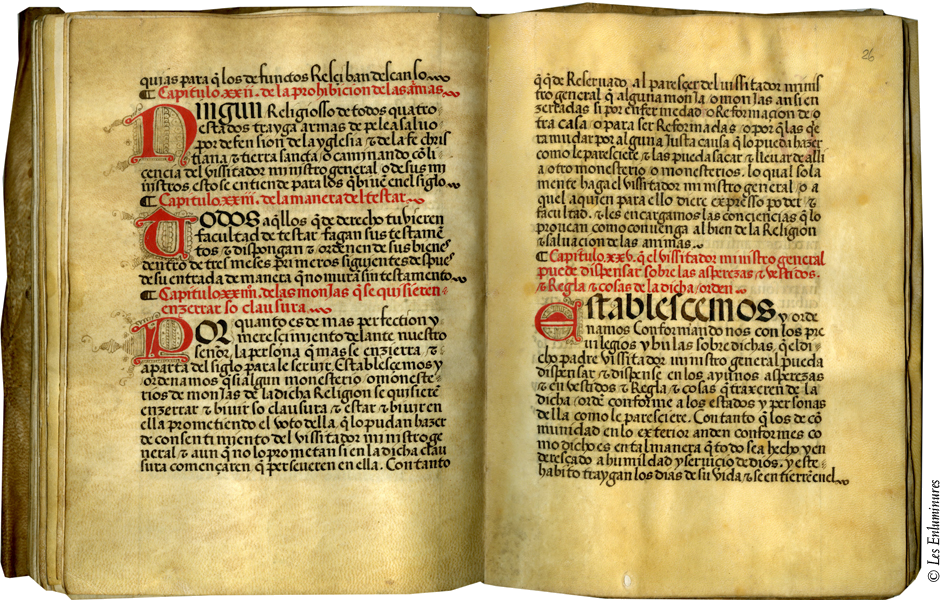 quias para q̃ los defunctos Reſçiban descanso
Capitulo. xxii. de la prohibicion de las armas
Ningun Religiosso de todos quatro
estados trayga armas de pelea saluo
por defension de la yglesia ⁊ de la fe chris
tiana ⁊ tierra sancta o caminando cõ li
cencia del vissitador ministro general o de sus mi
nistros esto se entiende para los q̃ biuẽ en el siglo
Capitulo. xxiii. de la manera del testar
Todos aq̃llos q̃ de derecho tubieren
facultad de testar fagan sus testamẽ
tos ⁊ dispongan ⁊ ordenen de sus bienes
dentro de tres meses primeros siguientes despues
de su entrada de manera q̃ no muran sin testamento
Capitulo. xxiiii. de las monjas q̃ se quisieren
enzerrar so clausura
Por quanto es de mas perfection y
merescimiento delante nuestro
señor, la persona q̃ mas se enzierra ⁊
aparta del siglo para le seruir. Establescemos y
ordenamos q̃ si algun monesterio o moneste
rios de monjas de la dicha Religion se quisierẽ
enzerrar ⁊ biuir so clausura ⁊ estar ⁊ biuir en
ella prometiendo el voto della, q̃ lo pudan hazer
de consentimiento del vissitador ministro ge
neral ⁊ aun q̃ no lo prometan si en la dicha clau
sura començaren q̃ perseueren en ella. Con tanto
26
q̃ q̃de Reseruado al paresçer del vissitador minis
tro general q̃ alguna monja o monjas ansi en
zerradas si por enfermedad o Reformacion de o
tra casa o para ser Reformadas o por q̃ las q̃e
ra mudar por alguna justa causa q̃ lo pueda hazer
como le paresciere ⁊ las pueda sacar ⁊ lleuar de alli
a otro monesterio o monesterios. lo qual sola
mente haga el vissitador ministro general o a
quel a quien para ello diere expresso poder ⁊
facultad. ⁊ les encargamos las conciencias q̃ lo
prouean como conuenga al bien de la Religion
⁊ saluacion de las animas
Capitulo. xxv. q̃ el vissitador ministro general
puede dispensar sobre las asperezas ⁊ vestidos.
⁊ Regla ⁊ cosas de la dicha orden
Establescemos y orde
namos Conformando nos con los pre
uilegios y bulas sobre dichas, q̃ el di
cho padre vissitador ministro general pueda
dispensar ⁊ dispense en los ayunos asperezas
⁊ en vestidos ⁊ Regla ⁊ cosas q̃ traxeren de la
dicha ordẽ conforme a los estados y personas
della como le paresciere. Con tanto q̃ los de cõ
munidad en lo exterior anden conformes co
mo dicho es en tal manera q̃ todo sea hecho y en
deresçado a humildad y seruicio de dios. y este
habito traygan los dias de su vida ⁊ se entierrẽ en el
© Les Enluminures